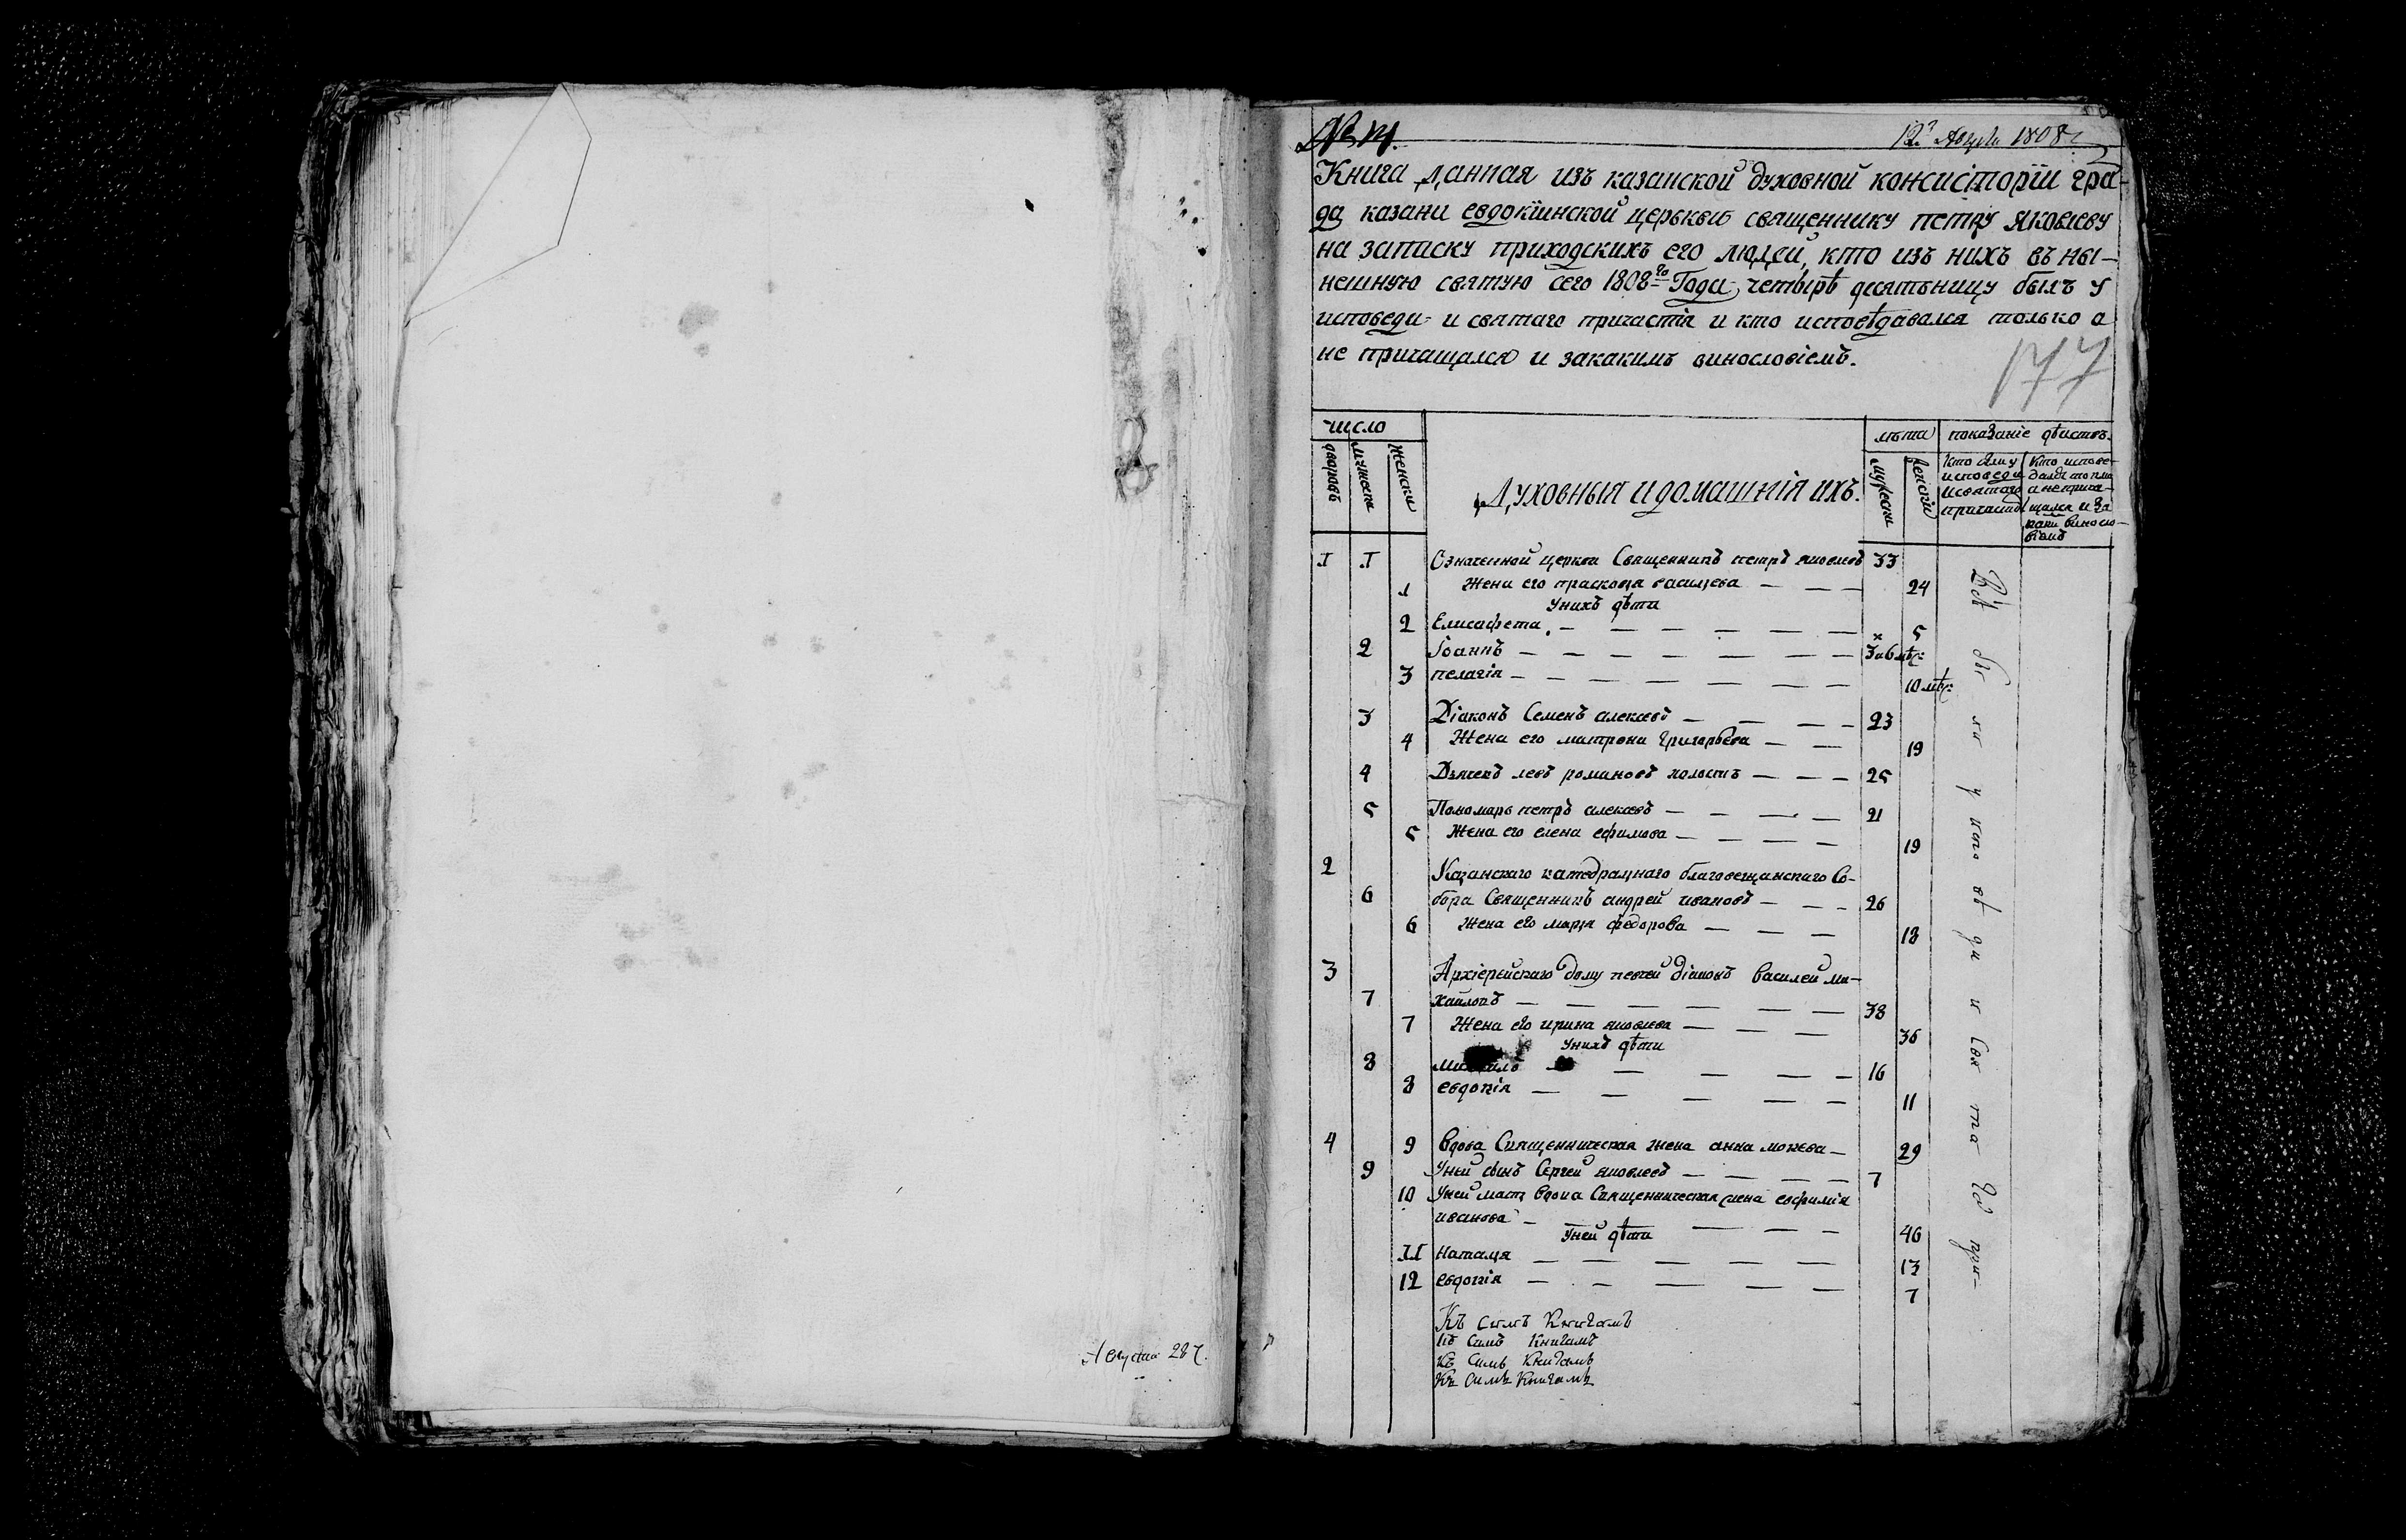 Августа 28 ч.
12 Августа 1808
Книга данная изъ казанской духовной консисторіи гра-
да казани евдокiинской церькви священнику петру Яковлеву
на записку приходскихъ его людей, кто изъ нихъ въ ны-
нешную святую сего 1808го Года четырѣ десятьницу былъ у
исповеди и святаго причастія и кто исповѣдавался только а
не причащался и закакимъ винословіемъ.
177
число
дворовъ
мужеска
женски
Духовныя и домашнія ихъ.
лѣта
мужески
женскіи
показаніе дѣиство.
Кто былу исповеди и святаго причастія
Кто исповедался токмо а непричащался и за каки винословіемъ
1 1 Означенной церкви Священникъ петръ яковлевъ 33
1 Жена его прасковья василева 24
Унихъ дѣти
2 Елисафета 5
2 Іоаннъ 3 и 6 мѣ:
3 пелагія 10 мѣ:
3 Діаконъ Семенъ алексѣевъ 23
4 Жена его матрона григорьева 19
4 Дьячекъ левъ романовъ холостъ 25
5 Пономарь петръ алексѣевъ 21
5 Жена его елена ефимова 19
2 Казанскаго катедралнаго благовещанскаго Со-
6 бора Священникъ андрей ивановъ 26
6 Жена его марья федорова 18
3 Архіерейскаго дому певчей діаконъ василей ми-
7 хаиловъ 38
7 Жена его ирина яковлева 36
Унихъ дѣти
8 михаилъ 16
8 евдокія 11
4 9 Вдова Священническая жена анна мокеева 29
9 Уней сынъ Сергей яковлевъ 7
10 Уней мать вдова Священническая жена евфимія
иванова 46
Уней дѣти
11 Наталья 13
12 евдокія 7
Всѣ бы ли у испо вѣ ди и Свя та го при-
Къ симъ Книгамъ
Къ симъ Книгамъ
Къ симъ Книгамъ
Къ симъ Книгамъ